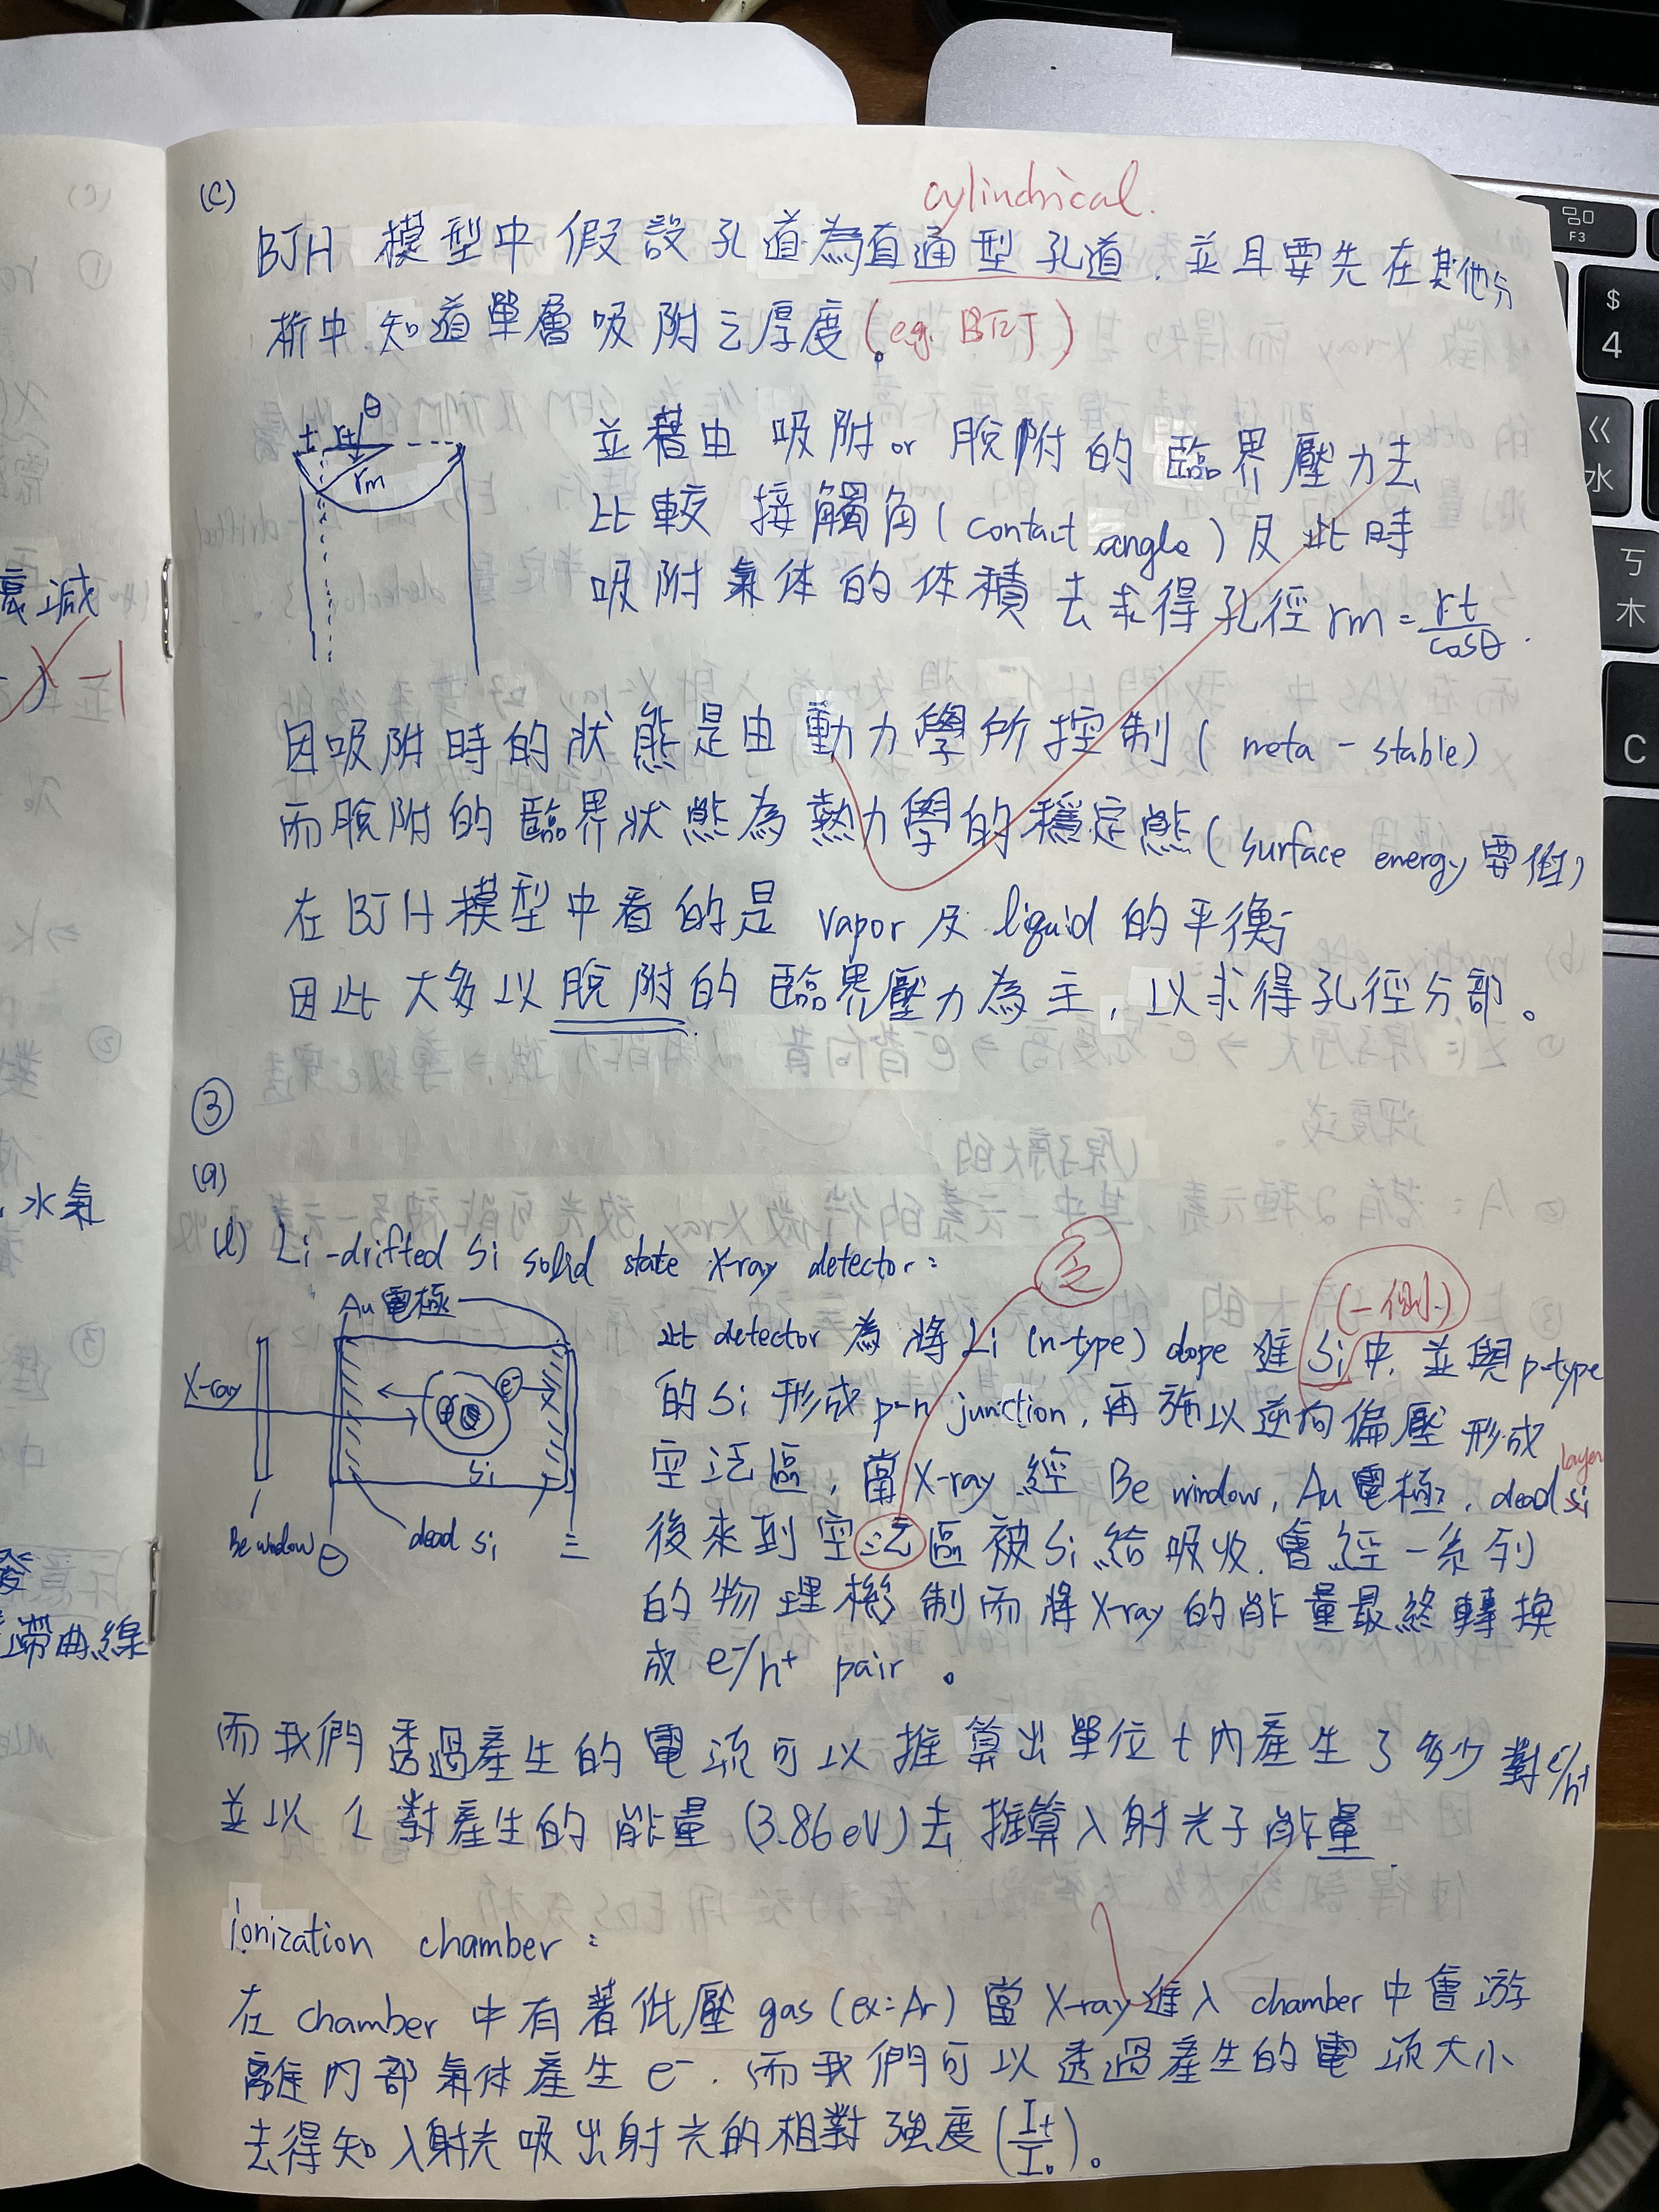 (C)
cylindrical.
BJH 模型中假設孔道為直通型孔道，並且要先在其他分
析中知道單層吸附之厚度。(e.g. BET)
θ
t rt
rm
並藉由 吸附 or 脫附的臨界壓力去
比較 接觸角 (contact angle) 及此時
吸附氣体的体積去求得孔徑 rm = rt/cosθ.
因吸附時的狀態是由動力學所控制 (meta-stable)
而脫附的臨界狀態為熱力學的穩定態 (surface energy 要低)
在 BJH 模型中看的是 vapor 及 liquid 的平衡
因此大多以脫附的臨界壓力為主，以求得孔徑分部。
③
(a)
Li-drifted Si solid state X-ray detector:
乏
(一側)
Au 電極
X-ray
e⁻
Si
Be window
⊖
dead Si
此 detector 為將 Li (n-type) dope 進 Si 中，並與 p-type
的 Si 形成 p-n junction，再施以逆向偏壓形成
layer
空泛區，當 X-ray 經 Be window, Au 電極, dead Si
後來到空泛區被 Si 給吸收，會經一系列
的物理機制而將 X-ray 的能量最終轉換
成 e⁻/h⁺ pair。
而我們透過產生的電流可以推算出單位 t 內產生了多少對 e⁻/h⁺
並以 1 對產生的能量 (3.86 eV) 去推算入射光子能量.
ionization chamber:
在 chamber 中有著低壓 gas (ex: Ar) 當 X-ray 進入 chamber 中會游
離內部氣体產生 e⁻. 而我們可以透過產生的電流大小
去得知入射光吸出射光的相對強度 (It/I₀)。
衰減
-1
水氣
滯曲線
F3
$
4
水
ㄎ
木
C